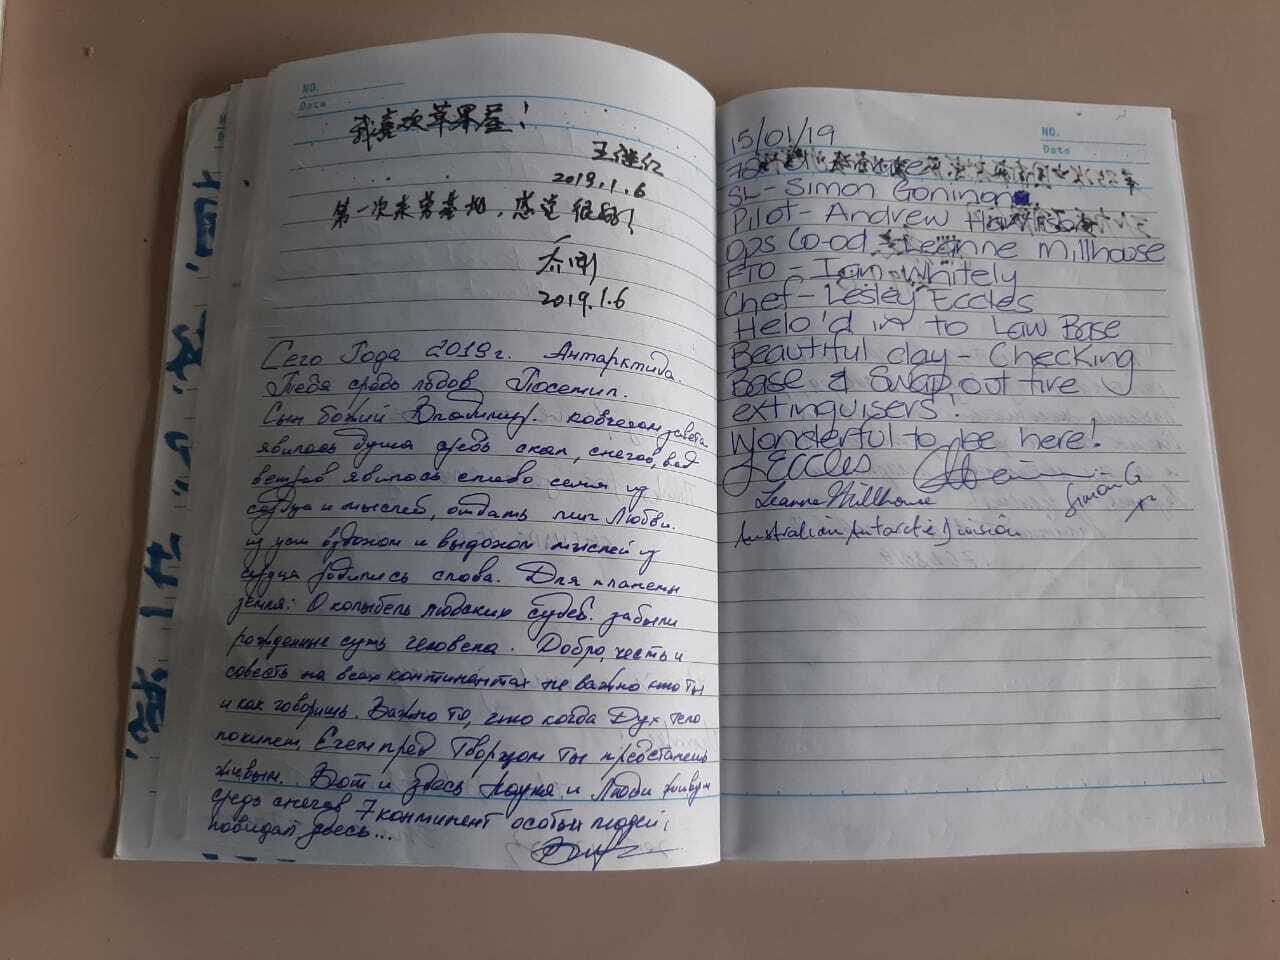 NO.
Date
我喜欢苹果屋!
王继红
2019.1.6
第一次来劳基地,感觉很好!
乔刚
2019.1.6
Сего Года 2019г. Антарктида.
Тебя средь льдов Посетил.
Сын божий Владимир. ковчегом завета
явилась душа средь скал, снегов, вод
ветров явилось слово семя из
сердца и мыслей, отдать миг Любви.
из уст вздохом и выдохом мыслей из
сердца родились слова. Для планеты
земля: О колыбель людских судеб. забыли
рожденные суть человека. Добро, честь и
совесть на всех континентах не важно кто ты
и как говоришь. Важно то, что когда Дух тело
покинет, Егем пред Творцом ты предстанешь
живым. Вот и здесь Наука и Люди живут
средь снегов 7 континент особых людей,
повидал здесь...
NO.
Date
15/01/19
SL- Simon Goninon
Pilot- Andrew
Ops Co-od Leanne Millhouse
FTO - Ian Whitely
Chef- Lesley Eccles
Helo'd in to Law Base
Beautiful day - Checking
Base & Swap out fire
extinguisers!
Wonderful to be here!
L Eccles
Leanne Millhouse
Simon G
Australian Antarctic Division